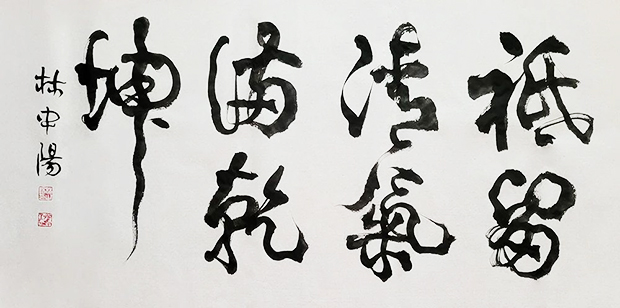 祇留
清氣
滿乾
坤
林中陽